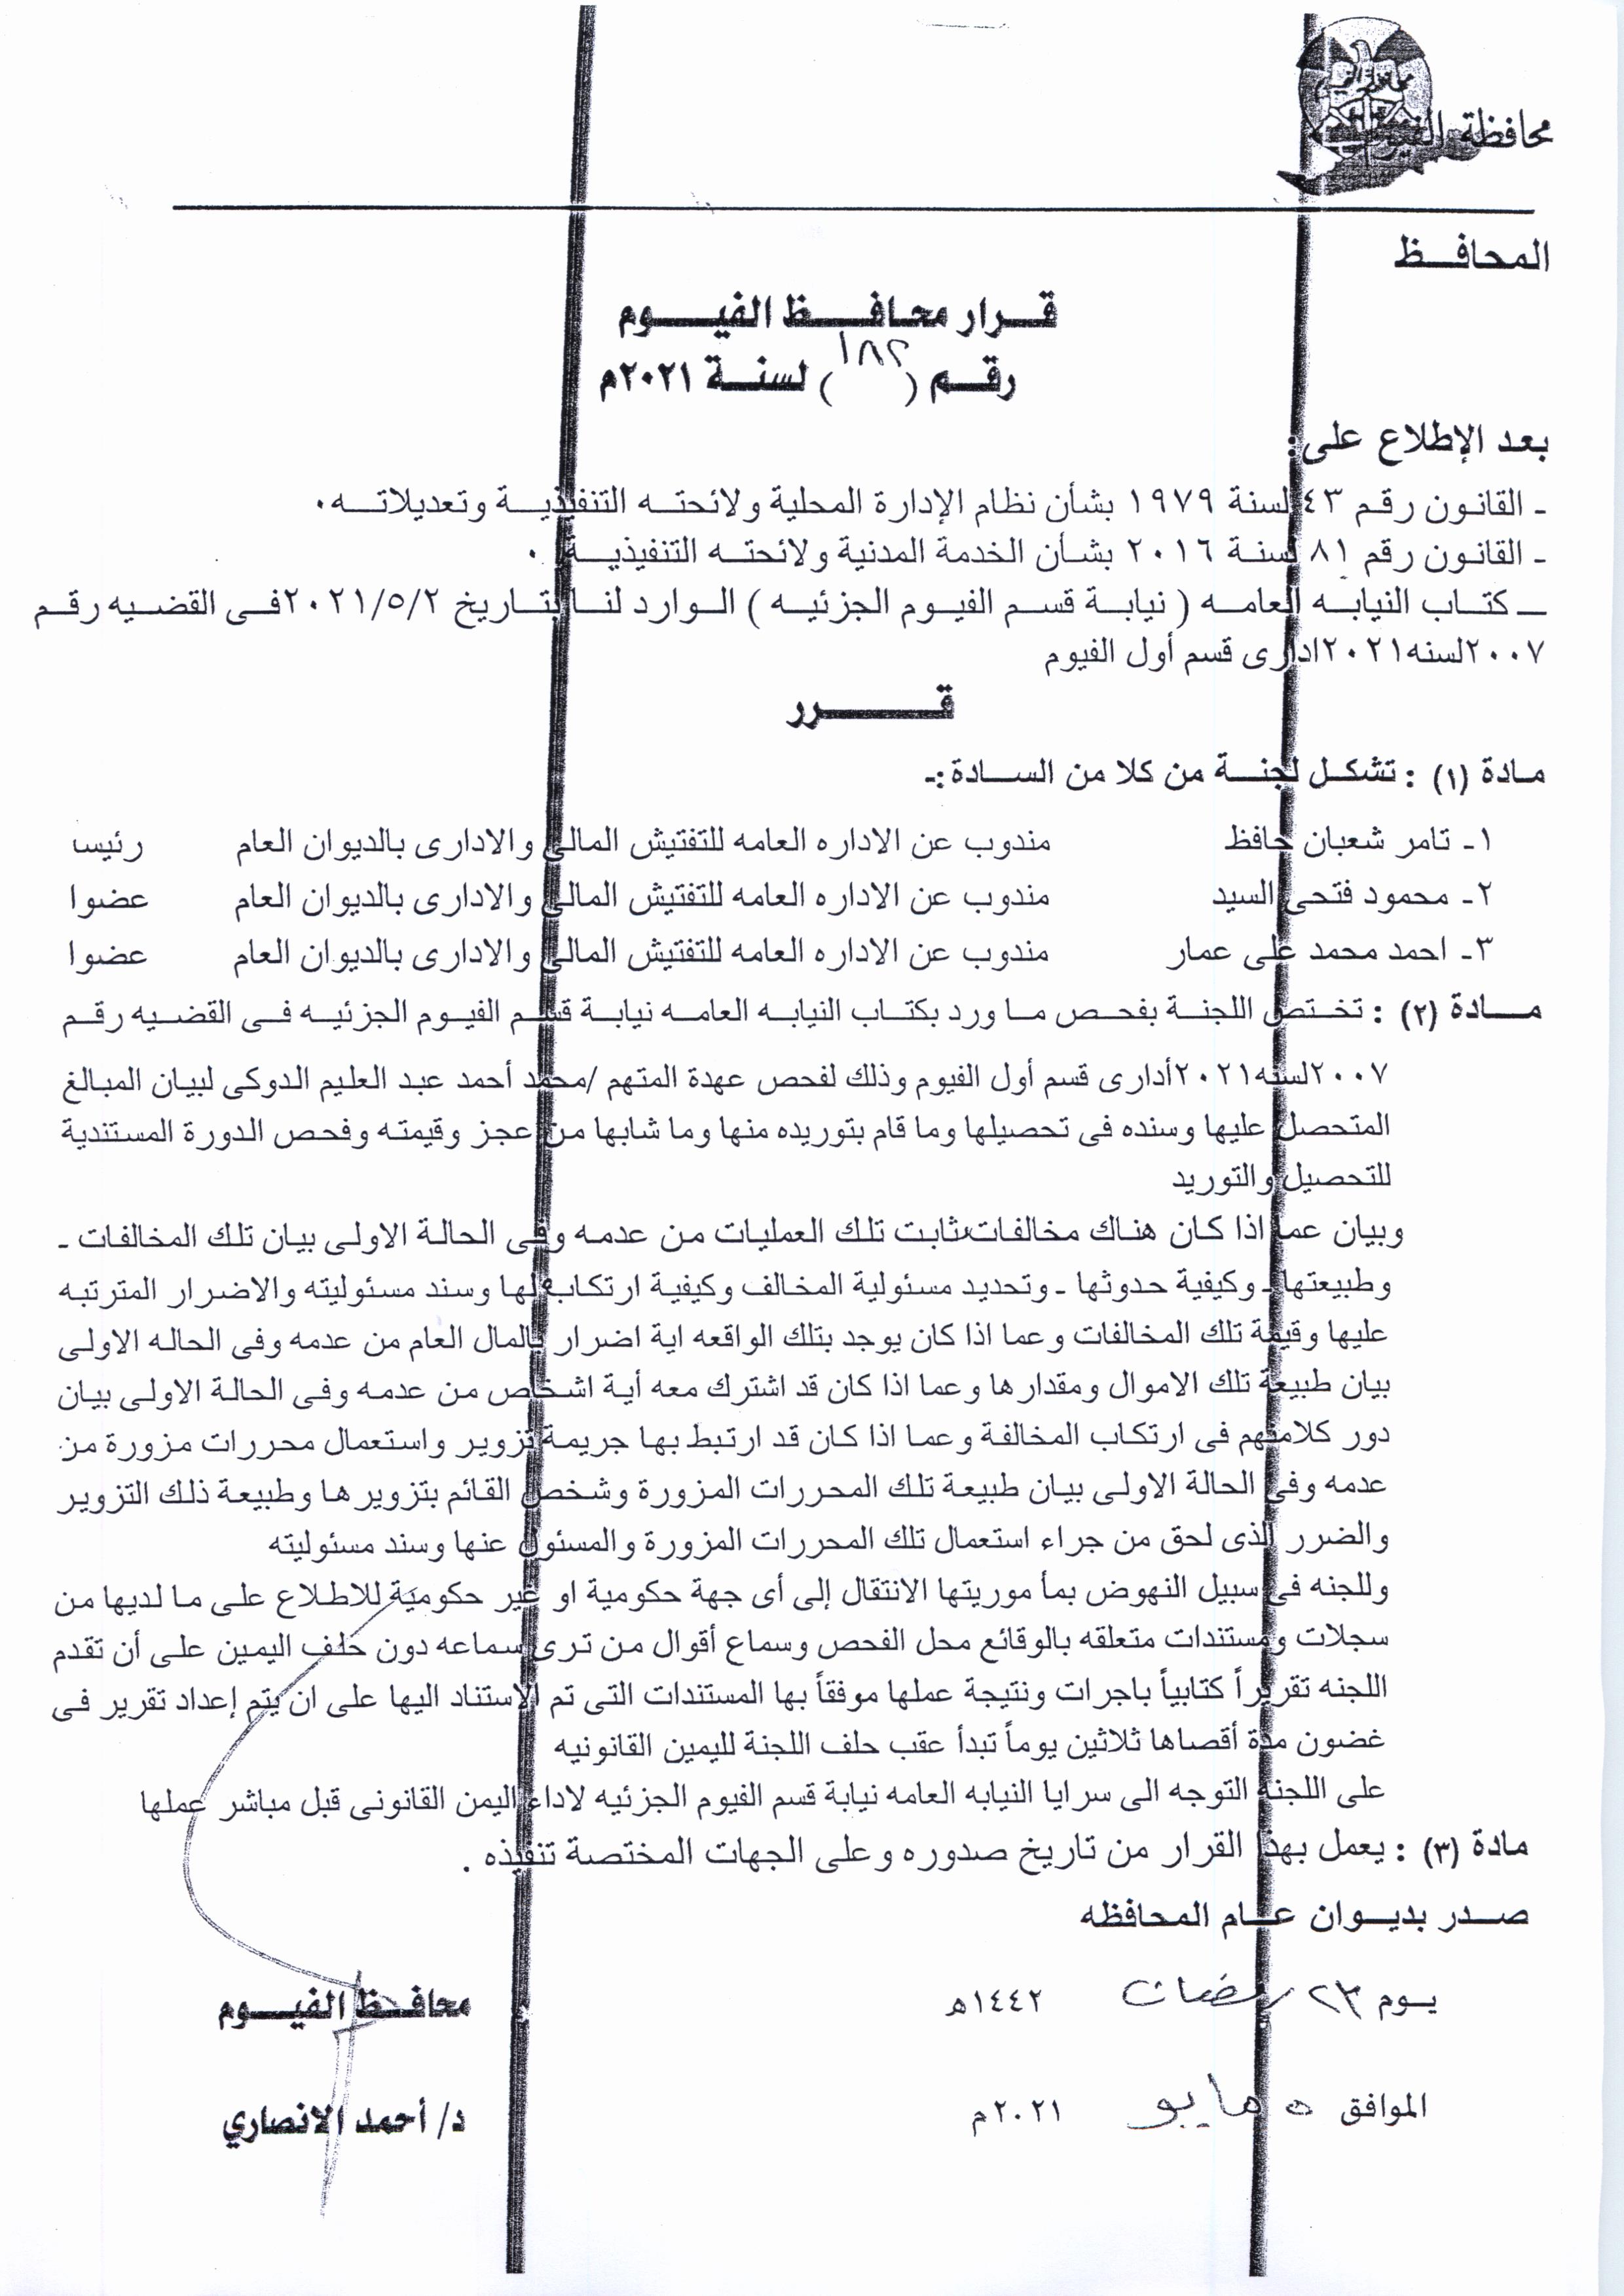 محافظة الفيوم
المحافظ
قرار محافظ الفيوم
رقم (١٨٢) لسنة ٢٠٢١م
بعد الإطلاع على:
ـ القانون رقم ٤٣ لسنة ١٩٧٩ بشأن نظام الإدارة المحلية ولائحته التنفيذية وتعديلاته.
ـ القانون رقم ٨١ لسنة ٢٠١٦ بشأن الخدمة المدنية ولائحته التنفيذية.
ـ كتاب النيابه العامه ( نيابة قسم الفيوم الجزئيه ) الوارد لنا بتاريخ ٢٠٢١/٥/٢ فى القضيه رقم
٢٠٠٧لسنه٢٠٢١ادارى قسم أول الفيوم
قرر
مادة (١) : تشكل لجنة من كلا من السادة:ـ
١ـ تامر شعبان حافظ مندوب عن الاداره العامه للتفتيش المالى والادارى بالديوان العام رئيسا
٢ـ محمود فتحى السيد مندوب عن الاداره العامه للتفتيش المالى والادارى بالديوان العام عضوا
٣ـ احمد محمد على عمار مندوب عن الاداره العامه للتفتيش المالى والادارى بالديوان العام عضوا
مادة (٢) : تختص اللجنة بفحص ما ورد بكتاب النيابه العامه نيابة قسم الفيوم الجزئيه فى القضيه رقم
٢٠٠٧لسنه٢٠٢١أدارى قسم أول الفيوم وذلك لفحص عهدة المتهم /محمد أحمد عبد العليم الدوكى لبيان المبالغ
المتحصل عليها وسنده فى تحصيلها وما قام بتوريده منها وما شابها من عجز وقيمته وفحص الدورة المستندية
للتحصيل والتوريد
وبيان عما اذا كان هناك مخالفات ثابت تلك العمليات من عدمه وفى الحالة الاولى بيان تلك المخالفات ـ
وطبيعتها ـ وكيفية حدوثها ـ وتحديد مسئولية المخالف وكيفية ارتكابه لها وسند مسئوليته والاضرار المترتبه
عليها وقيمة تلك المخالفات وعما اذا كان يوجد بتلك الواقعه اية اضرار بالمال العام من عدمه وفى الحاله الاولى
بيان طبيعة تلك الاموال ومقدارها وعما اذا كان قد اشترك معه أية اشخاص من عدمه وفى الحالة الاولى بيان
دور كلامنهم فى ارتكاب المخالفة وعما اذا كان قد ارتبط بها جريمة تزوير واستعمال محررات مزورة من
عدمه وفى الحالة الاولى بيان طبيعة تلك المحررات المزورة وشخص القائم بتزويرها وطبيعة ذلك التزوير
والضرر الذى لحق من جراء استعمال تلك المحررات المزورة والمسئول عنها وسند مسئوليته
وللجنه فى سبيل النهوض بمأموريتها الانتقال إلى أى جهة حكومية او غير حكومية للاطلاع على ما لديها من
سجلات ومستندات متعلقه بالوقائع محل الفحص وسماع أقوال من ترى سماعه دون حلف اليمين على أن تقدم
اللجنه تقريراً كتابياً باجرات ونتيجة عملها موفقاً بها المستندات التى تم الاستناد اليها على ان يتم إعداد تقرير فى
غضون مدة أقصاها ثلاثين يوماً تبدأ عقب حلف اللجنة لليمين القانونيه
على اللجنة التوجه الى سرايا النيابه العامه نيابة قسم الفيوم الجزئيه لاداء اليمن القانونى قبل مباشر عملها
مادة (٣) : يعمل بهذا القرار من تاريخ صدوره وعلى الجهات المختصة تنفيذه .
صدر بديوان عام المحافظه
يوم ٢٣ رمضان ١٤٤٢هـ
محافظ الفيوم
الموافق ٥ مايو ٢٠٢١م
د/ أحمد الانصاري